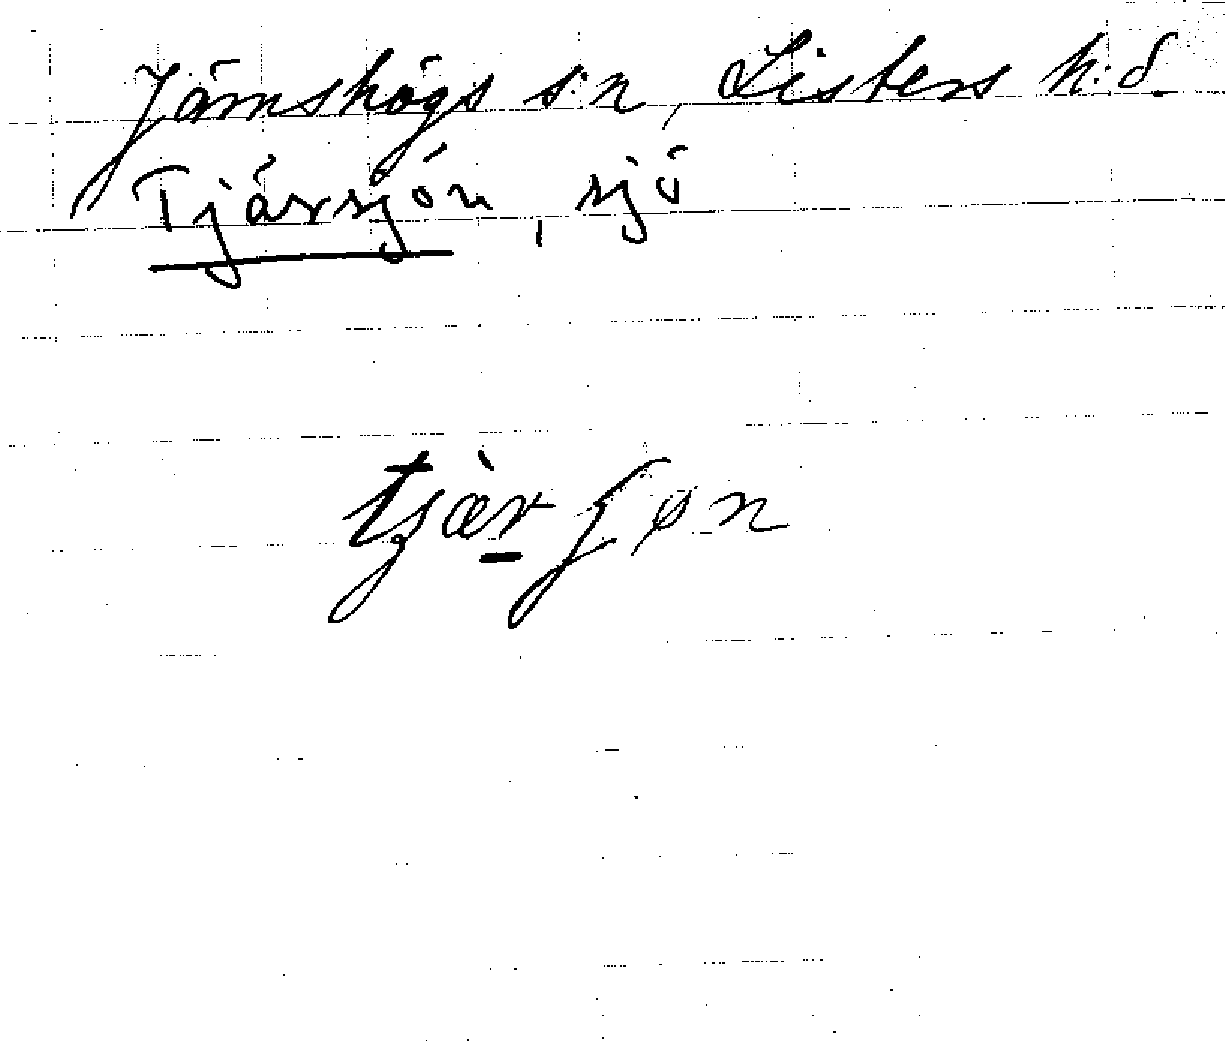 Jämshögs s:n, Listers h:d.
Tjärsjön, sjö
tjæ̀rʃøn